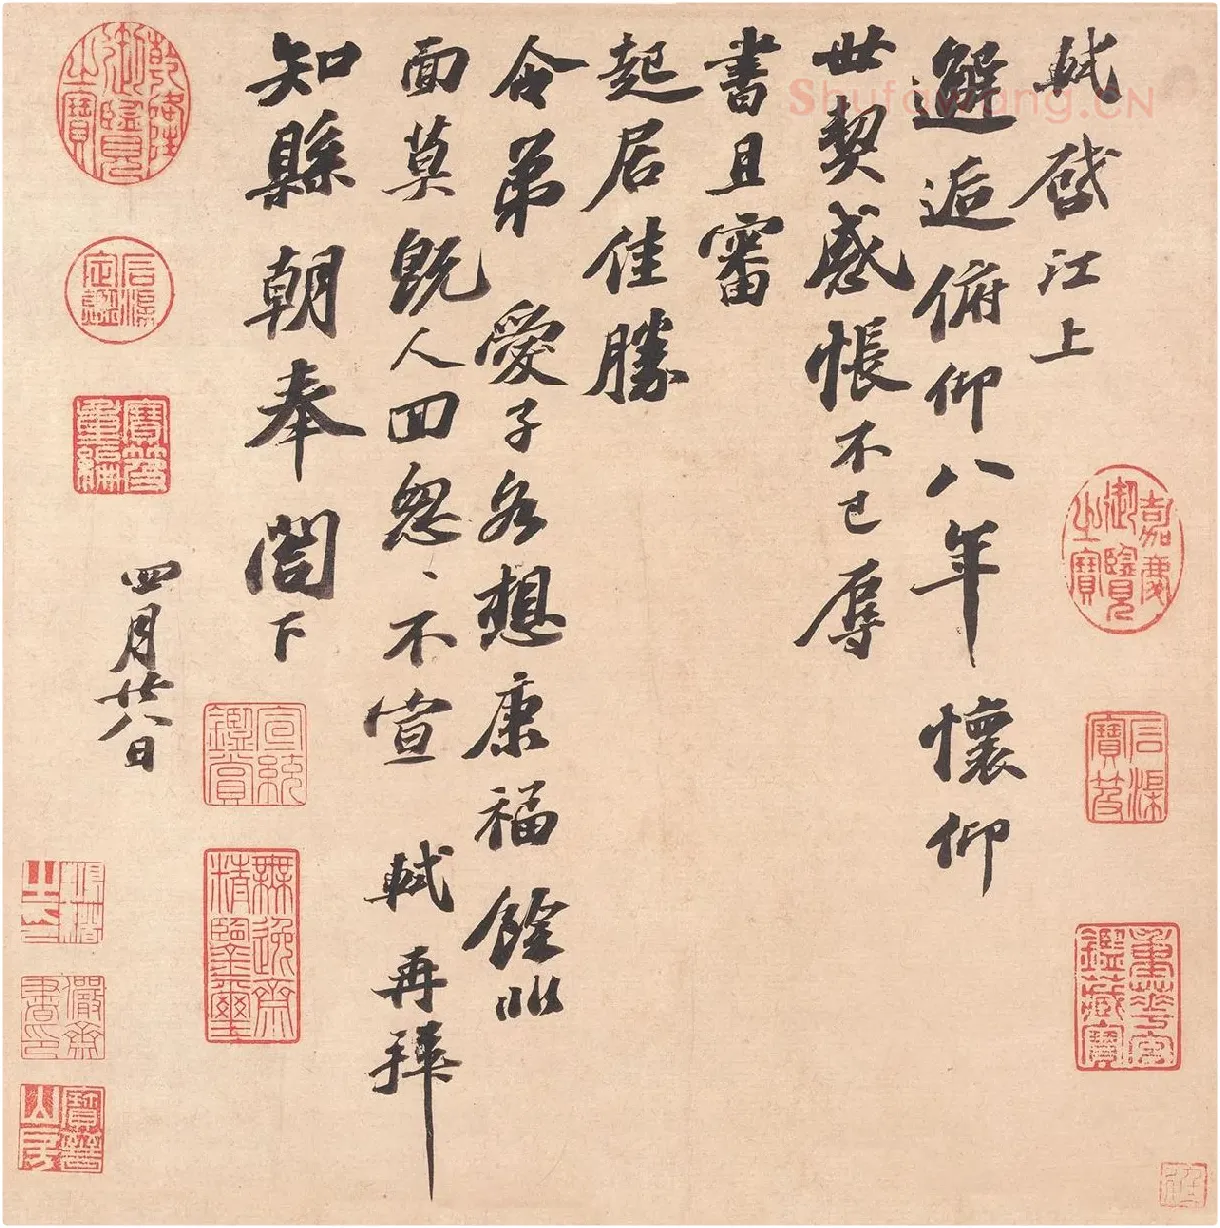 軾啓江上
邂逅俯仰八年懷仰
世契感悵不已辱
書且審
起居佳勝
令弟愛子各想康福餘非
面莫既人回怱〻不宣軾再拜
知縣朝奉閤下
四月廿八日
乾隆御覽之寶
石渠定鑑
寶笈重編
宣統鑑賞
無逸齋精鑒璽
嘉慶御覽之寶
石渠寶笈
重華宮鑑藏寶
儼齋祕玩
Shufawang.CN